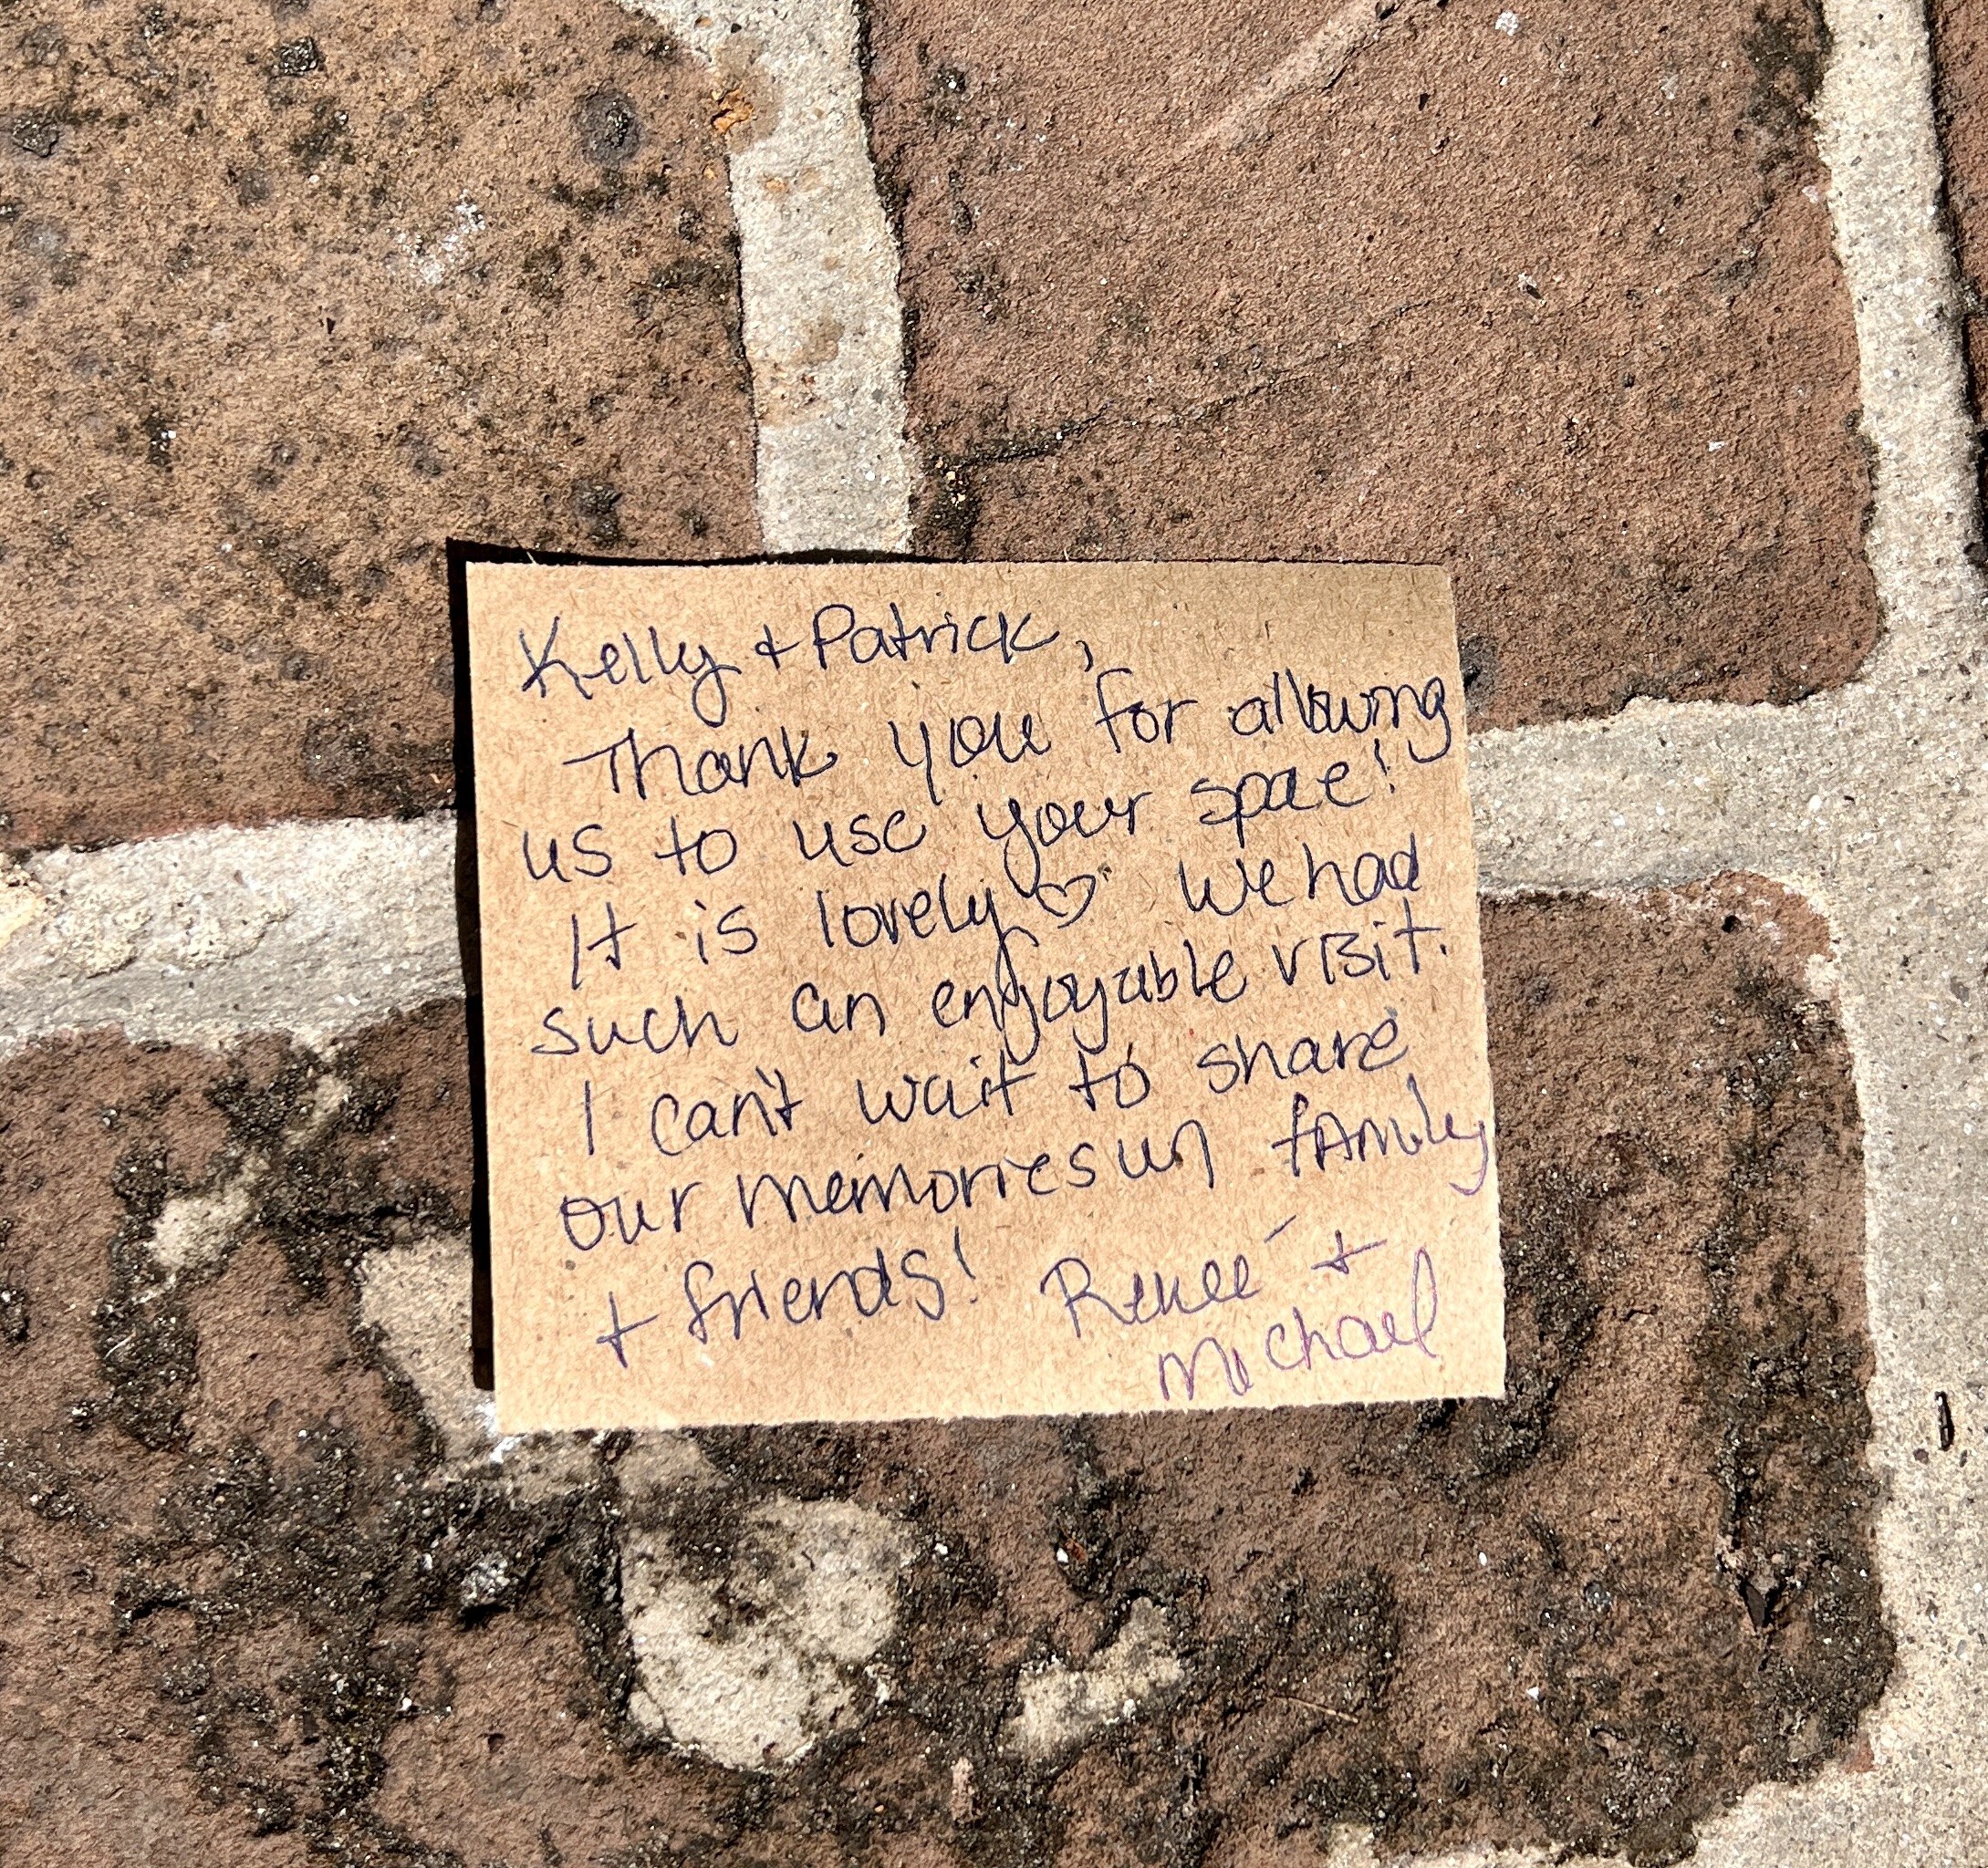 Kelly + Patrick,
Thank you for allowing
us to use your space!
It is lovely ♡ We had
such an enjoyable visit.
I can't wait to share
our memories w/ family
+ friends! Reneé +
Michael